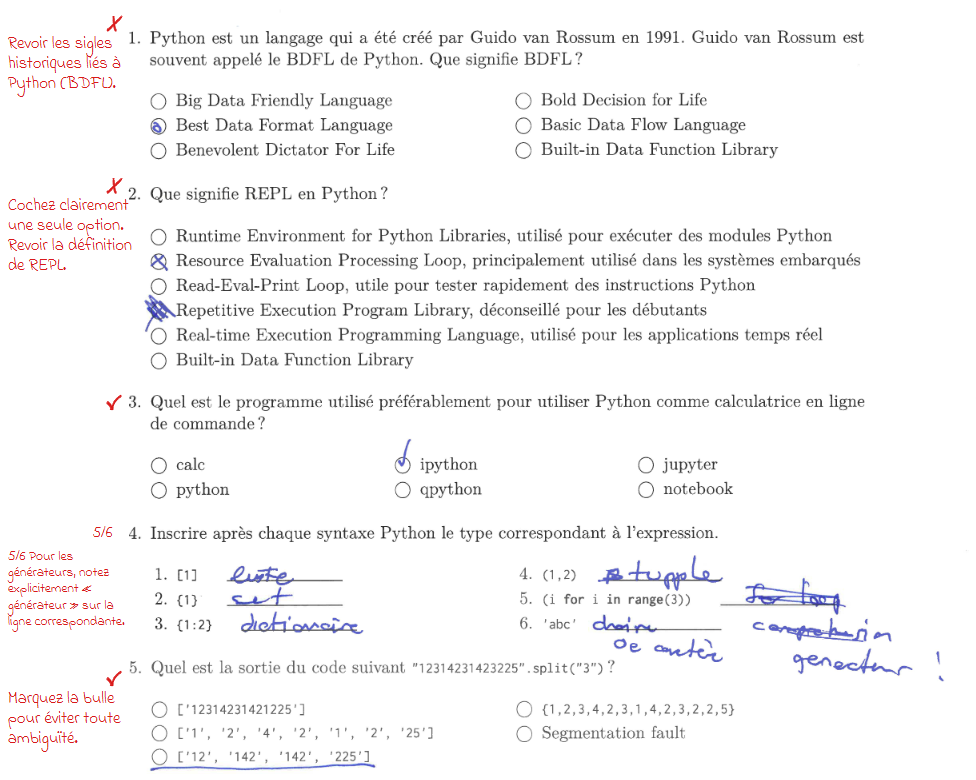 Revoir les sigles
historiques liés à
Python (BDFL).
1. Python est un langage qui a été créé par Guido van Rossum en 1991. Guido van Rossum est
souvent appelé le BDFL de Python. Que signifie BDFL ?
Big Data Friendly Language
Best Data Format Language
Benevolent Dictator For Life
Bold Decision for Life
Basic Data Flow Language
Built-in Data Function Library
Cochez clairement
une seule option.
Revoir la définition
de REPL.
2. Que signifie REPL en Python ?
Runtime Environment for Python Libraries, utilisé pour exécuter des modules Python
Resource Evaluation Processing Loop, principalement utilisé dans les systèmes embarqués
Read-Eval-Print Loop, utile pour tester rapidement des instructions Python
Repetitive Execution Program Library, déconseillé pour les débutants
Real-time Execution Programming Language, utilisé pour les applications temps réel
Built-in Data Function Library
3. Quel est le programme utilisé préférablement pour utiliser Python comme calculatrice en ligne
de commande ?
calc
python
ipython
qpython
jupyter
notebook
5/6
4. Inscrire après chaque syntaxe Python le type correspondant à l'expression.
5/6 Pour les
générateurs, notez
explicitement «
générateur » sur la
ligne correspondante.
1. [1] liste
2. {1} set
3. {1:2} dictionaire
4. (1,2) tupple
5. (i for i in range(3)) for loop
comprehension
generateur !
6. 'abc' chaine
5. Quel est la sortie du code suivant "12314231423225".split("3") ?
Marquez la bulle
pour éviter toute
ambiguïté.
['12314231421225']
['1', '2', '4', '2', '1', '2', '25']
['12', '142', '142', '225']
{1,2,3,4,2,3,1,4,2,3,2,2,5}
Segmentation fault